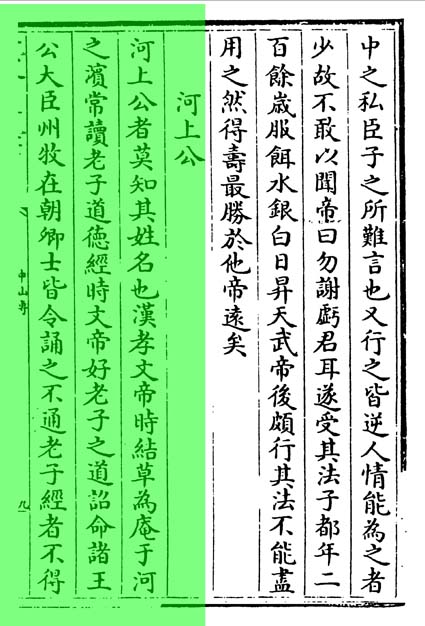 中之私臣子之所難言也又行之皆逆人情能為之者
少故不敢以聞帝曰勿謝戲君耳遂受其法子都年二
百餘歲服餌水銀白日昇天武帝後頗行其法不能盡
用之然得壽最勝於他帝遠矣
河上公
河上公者莫知其姓名也漢孝文帝時結草為庵于河
之濱常讀老子道德經時文帝好老子之道詔命諸王
公大臣州牧在朝卿士皆令誦之不通老子經者不得